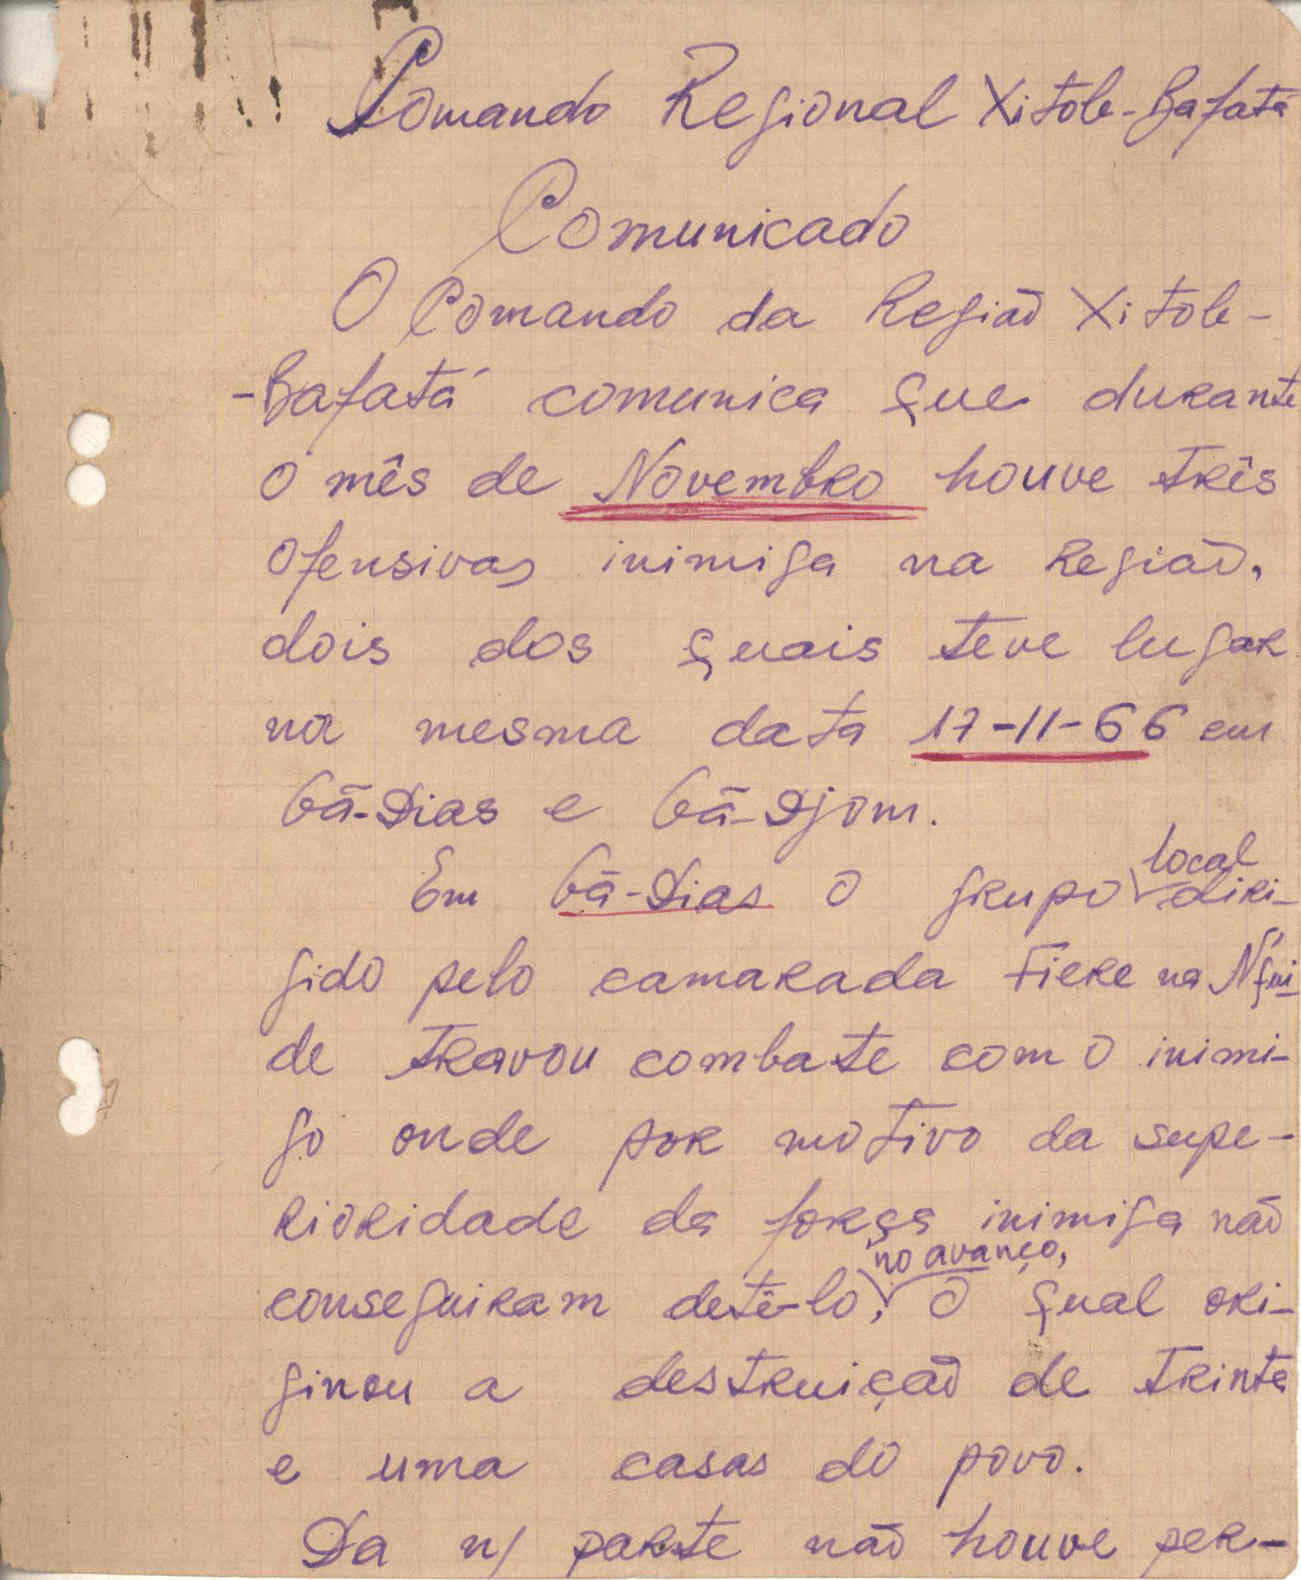 Comando Regional Xitole-Bafatá
Comunicado
O Comando da Região Xitole-
-Bafatá comunica que durante
o mês de Novembro houve três
ofensivas inimiga na Região,
dois dos quais teve lugar
na mesma data 17-11-66 em
Gã-Dias e Gã-Djom.
Em Gã-Dias o grupo local diri-
gido pelo camarada Fiere na N'Gui-
de travou combate com o inimi-
go onde por motivo da supe-
rioridade da força inimiga não
conseguiram detê-lo, no avanço, o qual ori-
ginou a destruição de trinta
e uma casas do povo.
Da n/ parte não houve per-